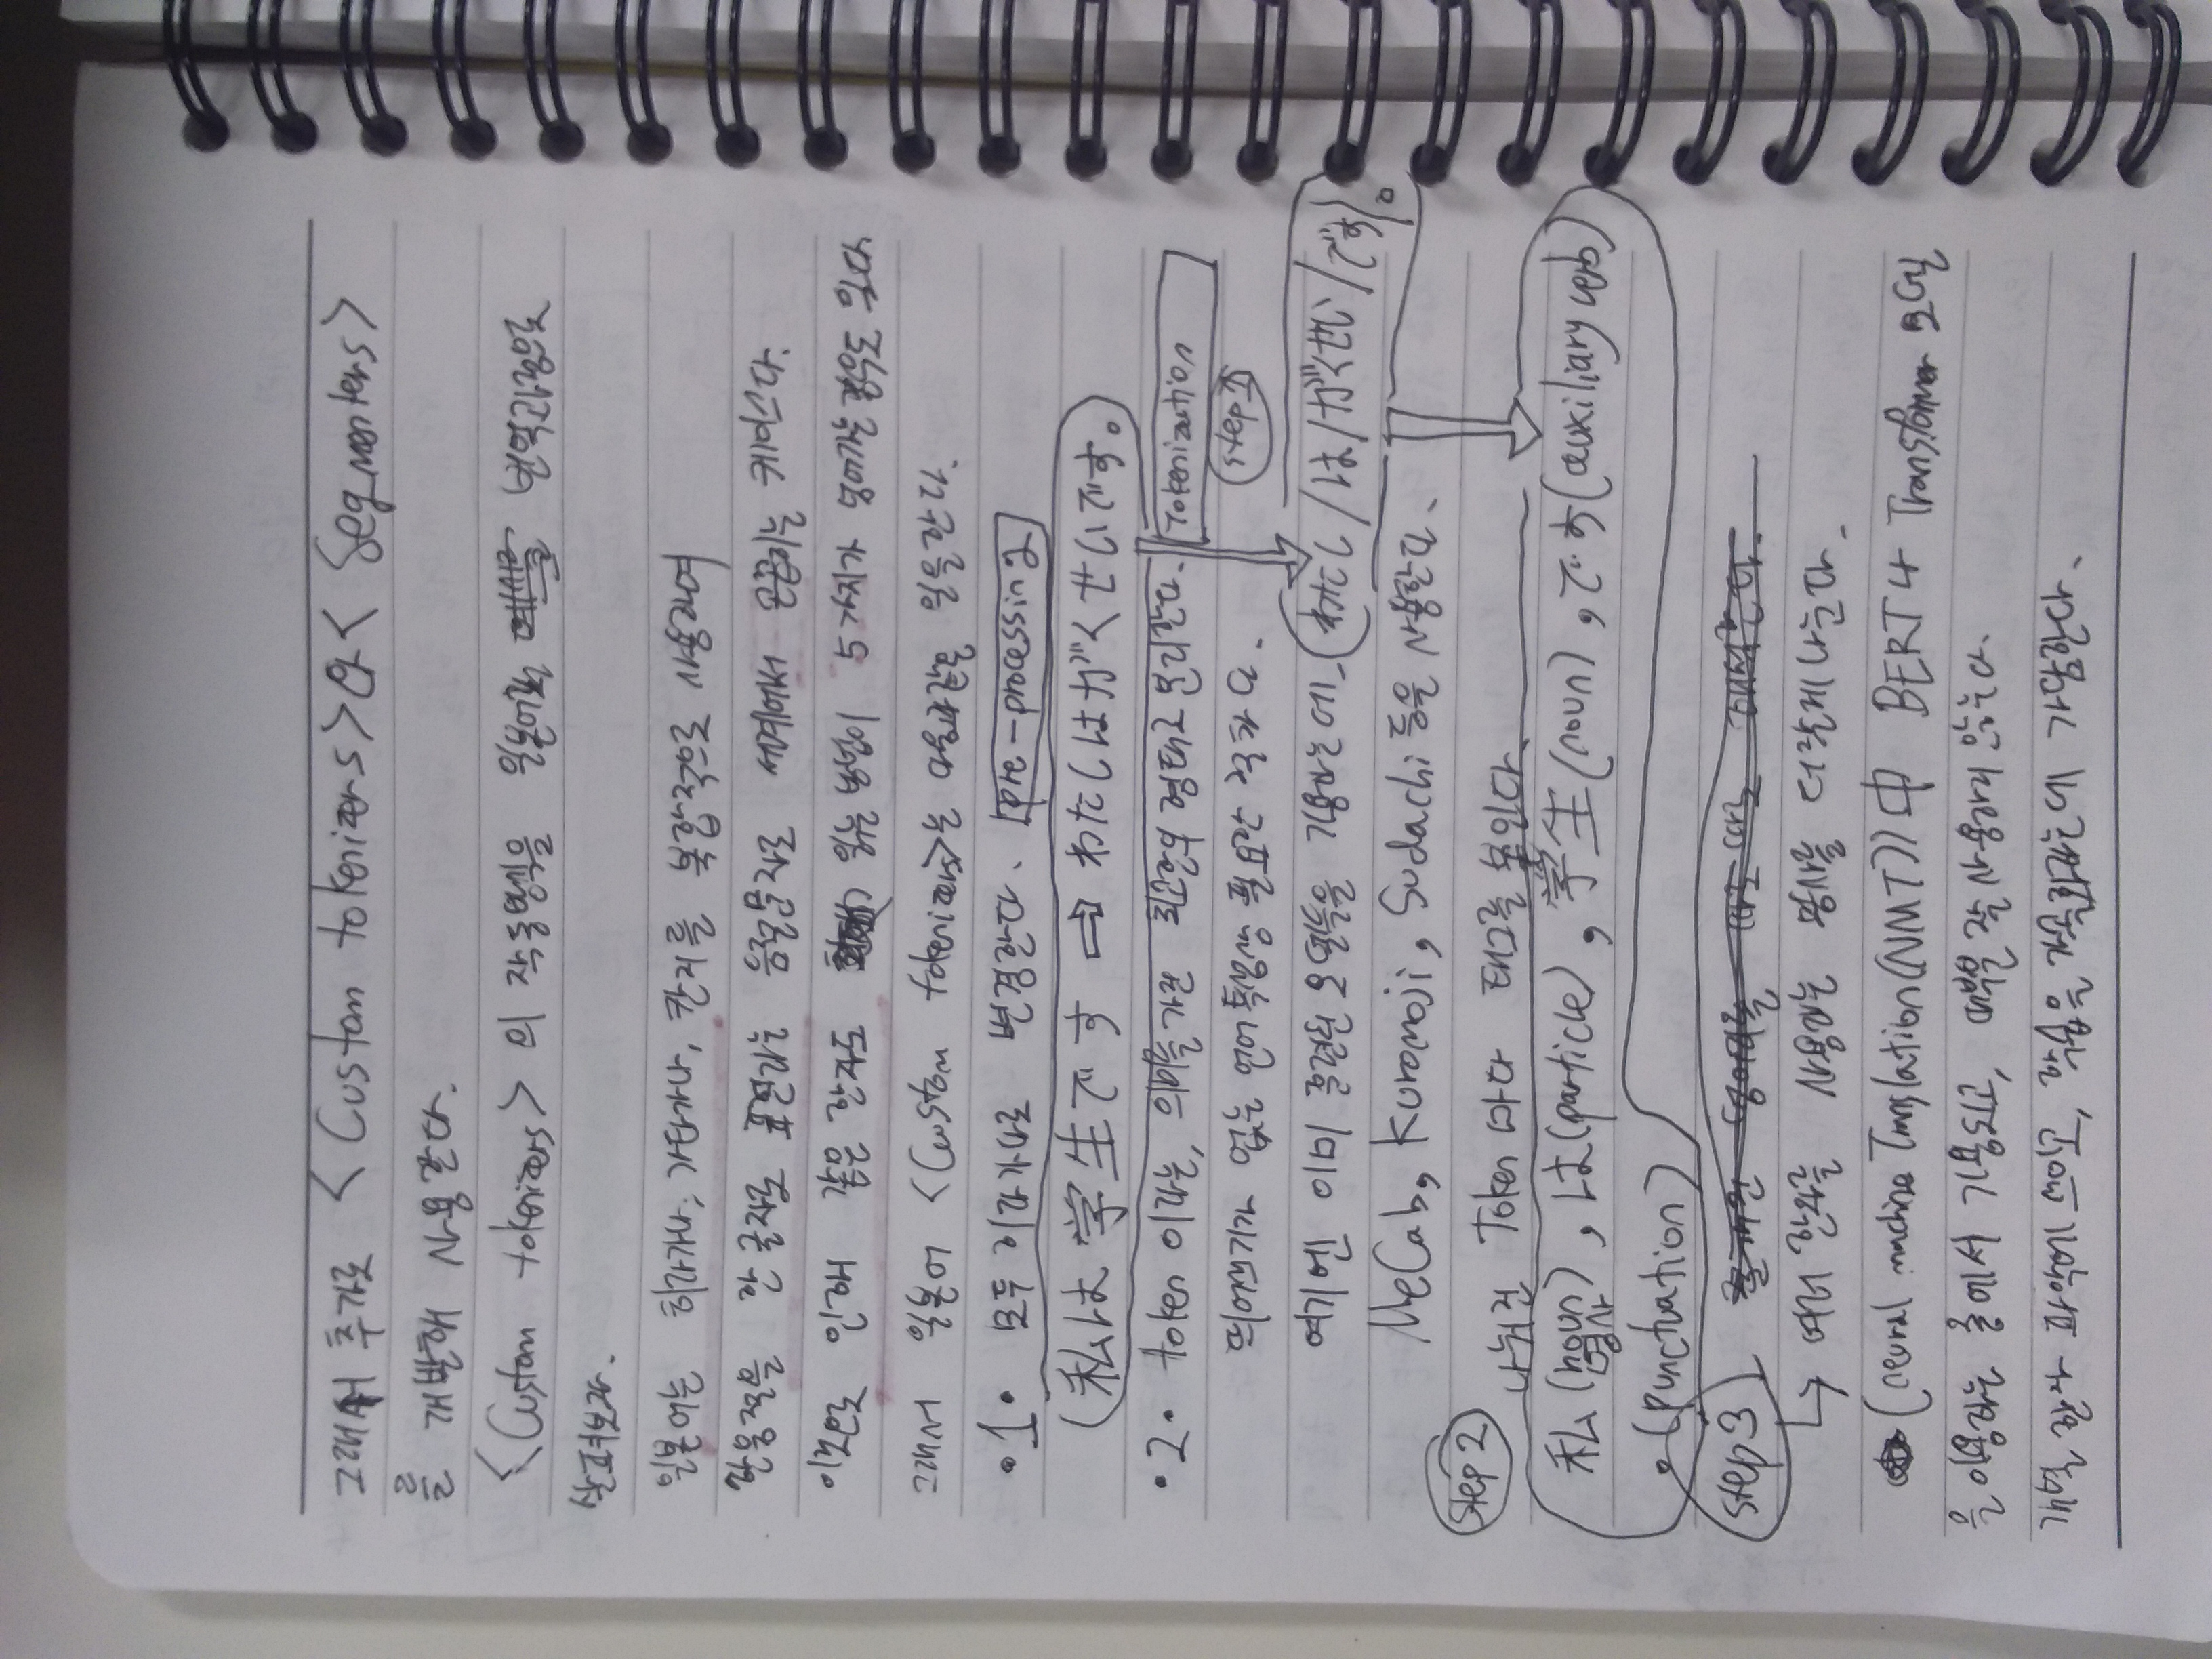 그래서 추가로 <Custom tokenizers>와 <Segmenters>
를 개발해 사용한다.
<Custom tokenizers>의 작동방식을 일본어 번역과정으로
살펴보자.
일본어는 히라가나, 가타카나, 칸지를 복합적으로 사용하여
한음절을 한 글자로 표현하는 음절문자로 세계에서 손꼽히는 케이스다.
이것으로 인해 같은 한자도 읽는 방법이 5가지가 넘어가는 경우도 있다
그래서 일본어 <Custom tokenizers>는 다음과 같은 일을 한다.
•1• 모두 히라가나로 변경한다. [pre-processing]
(私は学生です ⇨ わたしはがくせいです。)
•2• token 이라는, 의미를 가진 최소단위 형태로 분리한다. Tokenization
띄어쓰기가 없는 언어 특성상 필요한 절차다. step 1
여기엔 이미 훈련된 모델들을 기용하는데. わたし/は/がくせい/です/。
MeCab, Kuromoji, Sudachi 등을 사용한다.
step 2
나눠진 Token 마다 태그를 붙인다.
私(noun 명사), は(particle), 学生(noun), です(auxiliary verb)
。(punctuation)
step 3
↳ 여러 한자를 사용하는 명사를 더 잘게 나눈다.
(neural machine Translation(NMT)) 中 BERT나 Transformer 모델
을 이용하는 툴에서 기용되고, 대부분 잘 사용하지 않는다.
개별 한자 파악에 쓰이고, 학습을 가속화하는데 가담한다.